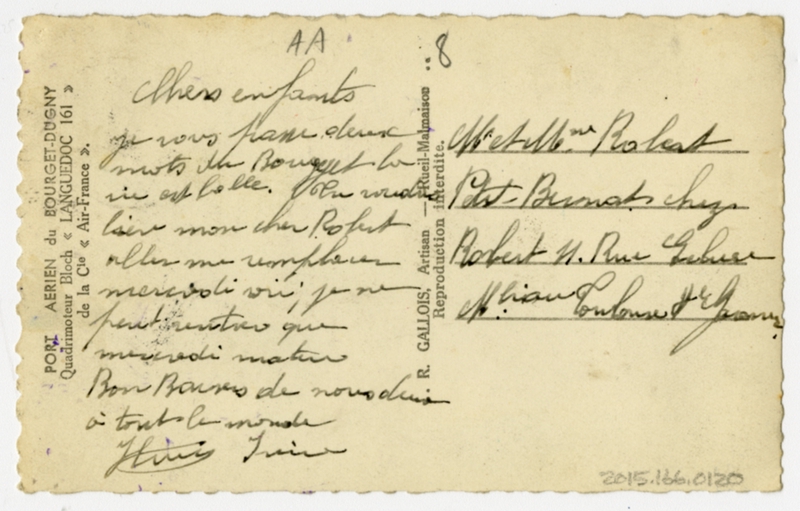 AA
8
PORT AERIEN du BOURGET-DUGNY
Quadrimoteur Bloch « LANGUEDOC 161 »
de la Cie « Air-France ».
Chers enfants
je vous passe deux
mots du Bourget la
vie est belle. Tu
mon cher Robert
aller me remplacer
mercredi je ne
peut rentrer que
mercredi matin
Bon Baisers de nous deux
à tout le monde
R. GALLOIS, Artisan — Rueil-Malmaison
Reproduction interdite.
Mr et Mme Robert
Petit chez
Robert 11. Rue
Toulouse Hte Garonne
2015.166.0120